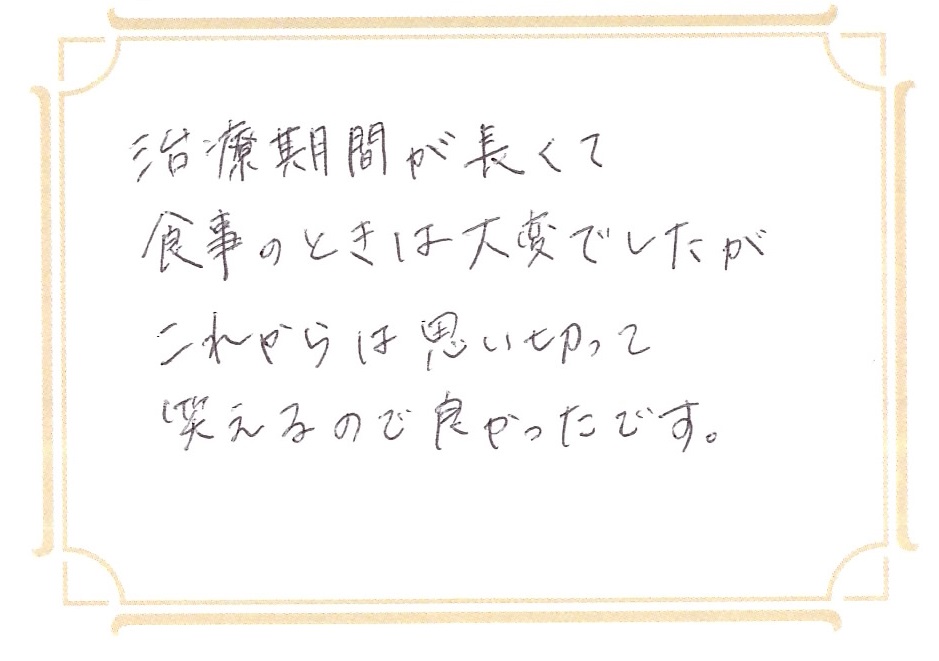 治療期間が長くて
食事のときは大変でしたが
これからは思い切って
笑えるので良かったです。